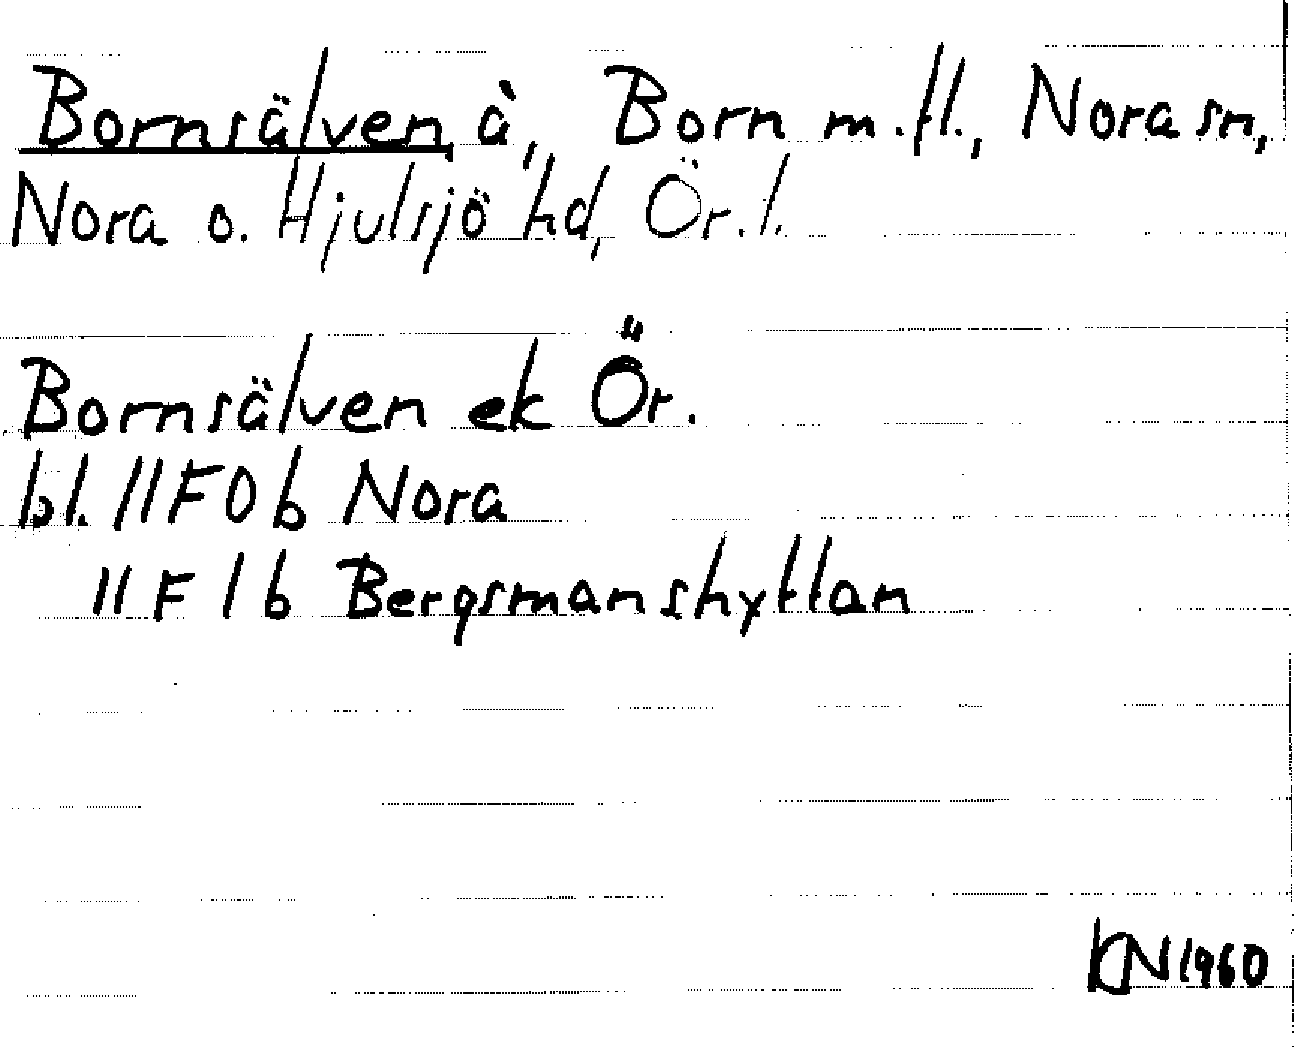 Bornsälven, å, Born m.fl., Nora sn,
Nora o. Hjulsjö hd, Ör.l.
Bornsälven ek Ör.
bl. 11F0b Nora
11F1b Bergsmanshyttan
KN1960